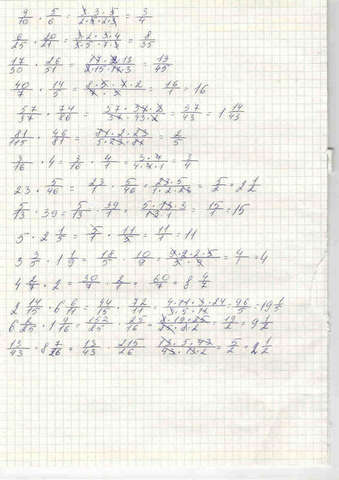 9/10 · 5/6 = 3·3·5/2·5·2·3 = 3/4
6/25 · 20/21 = 3·2·5·4/5·5·7·3 = 8/35
17/30 · 26/51 = 17·2·13/2·15·17·3 = 13/45
40/7 · 14/5 = 16/1 = 16
57/37 · 74/86 = 57·37·2/37·43·2 = 57/43 = 1 14/43
81/115 · 46/81 = 81·2·23/5·23·81 = 2/5
3/16 · 4 = 3/16 · 4/1 = 3·4/4·4·1 = 3/4
23 · 5/46 = 23/1 · 5/46 = 23·5/1·2·23 = 5/2 = 2 1/2
5/13 · 39 = 5/13 · 39/1 = 5·13·3/13·1 = 15/1 = 15
5 · 2 1/5 = 5/1 · 11/5 = 11/1 = 11
3 3/5 · 1 1/9 = 18/5 · 10/9 = 9·2·2·5/5·9 = 4/1 = 4
4 2/7 · 2 = 30/7 · 2/1 = 60/7 = 8 4/7
2 14/15 · 6 6/11 = 44/15 · 72/11 = 4·11·3·24/3·5·11 = 96/5 = 19 1/5
6 2/25 · 1 9/16 = 152/25 · 25/16 = 8·19·25/25·8·2 = 19/2 = 9 1/2
13/43 · 8 7/26 = 13/43 · 215/26 = 13·5·43/43·13·2 = 5/2 = 2 1/2